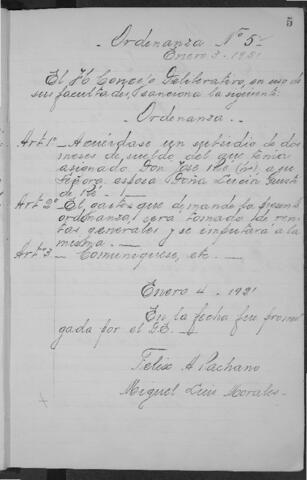 5
Ordenanza Nº 5
Enero 3 - 1921
El H Concejo Deliberativo, en uso de
sus facultades, sanciona la siguiente.
Ordenanza
Art 1º - Acuérdase un subsidio de dos
meses de sueldo del que tenía
asignado Don José Ré (hi), a su
Señora esposa Doña Lucía
de Ré -
Art 2º El gasto que demande la presente
ordenanza, será tomado de ren-
tas generales y se imputará a la
misma. -
Art 3. - Comuníquese, etc. -
Enero 4 - 1921
En la fecha fue promul
gada por el D.E. -
Felix A Pachano
Miguel Luis Morales -